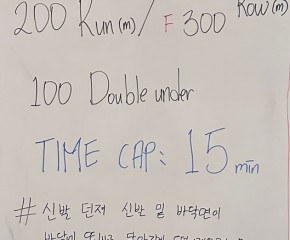 200 Run(m) / F 300 Row(m)
100 Double under
TIME CAP: 15 min
# 신발 던져 신발 밑 바닥면이
바닥에